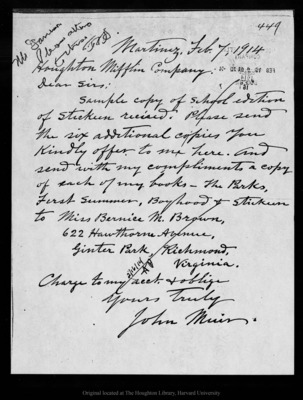 449
Martinez, Feb. 7, 1914
Houghton Mifflin Company
Dear Sirs:
Sample copy of School edition
of Stickeen recieved. Please send
the six additional copies you
kindly offer to me here. And
send with my compliments a copy
of each of my books – The Parks,
First Summer, Boyhood & Stickeen
to Miss Bernice M. Brown,
622 Hawthorne Avenue,
Ginter Park, Richmond,
Virginia.
Charge to my acct. & oblige
Yours truly
John Muir.
Original located at The Houghton Library, Harvard University